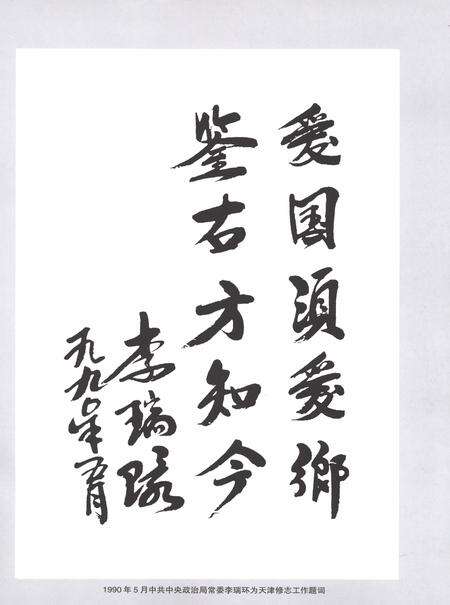 爱国须爱鄉
鉴古方知今
李瑞环
一九九〇年五月
1990年5月中共中央政治局常委李瑞环为天津修志工作题词